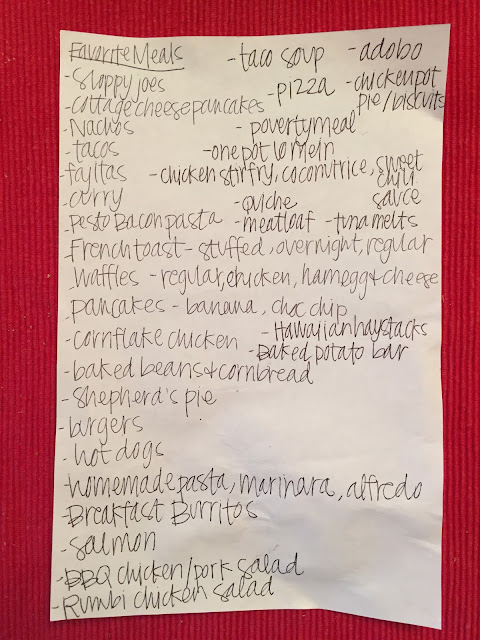 Favorite Meals -taco soup -adobo
-Sloppy joes -pizza -chicken pot
-cottage cheese pancakes pie/biscuits
-Nachos -poverty meal
-tacos -one pot lo mein
-fajitas -chicken stirfry, coconut rice, sweet
-curry chili
-quiche sauce
-pesto Bacon pasta -meatloaf -tuna melts
-French toast - stuffed, overnight, regular
-Waffles - regular, chicken, ham egg & cheese
-pancakes - banana, choc chip
-cornflake chicken -Hawaiian haystacks
-Baked potato bar
-baked beans & cornbread
-Shepherd's pie
-burgers
-hot dogs
-homemade pasta, marinara, alfredo
-Breakfast Burritos
-salmon
-BBQ chicken/pork salad
-Rumbi chicken salad